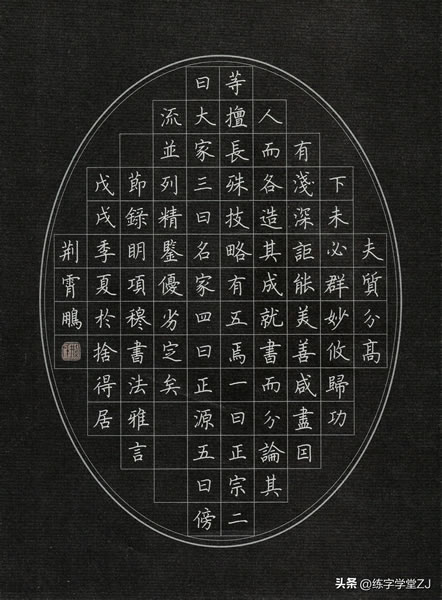 夫質分高
下未必群妙攸歸功
有淺深詎能美善咸盡囙
人而各造其成就書而分論其
等擅長殊技略有五焉一曰正宗二
曰大家三曰名家四曰正源五曰傍
流並列精鑒優劣定矣
節錄明項穆書法雅言
戊戌季夏於捨得居
荆霄鵬
头条 @练字学堂ZJ